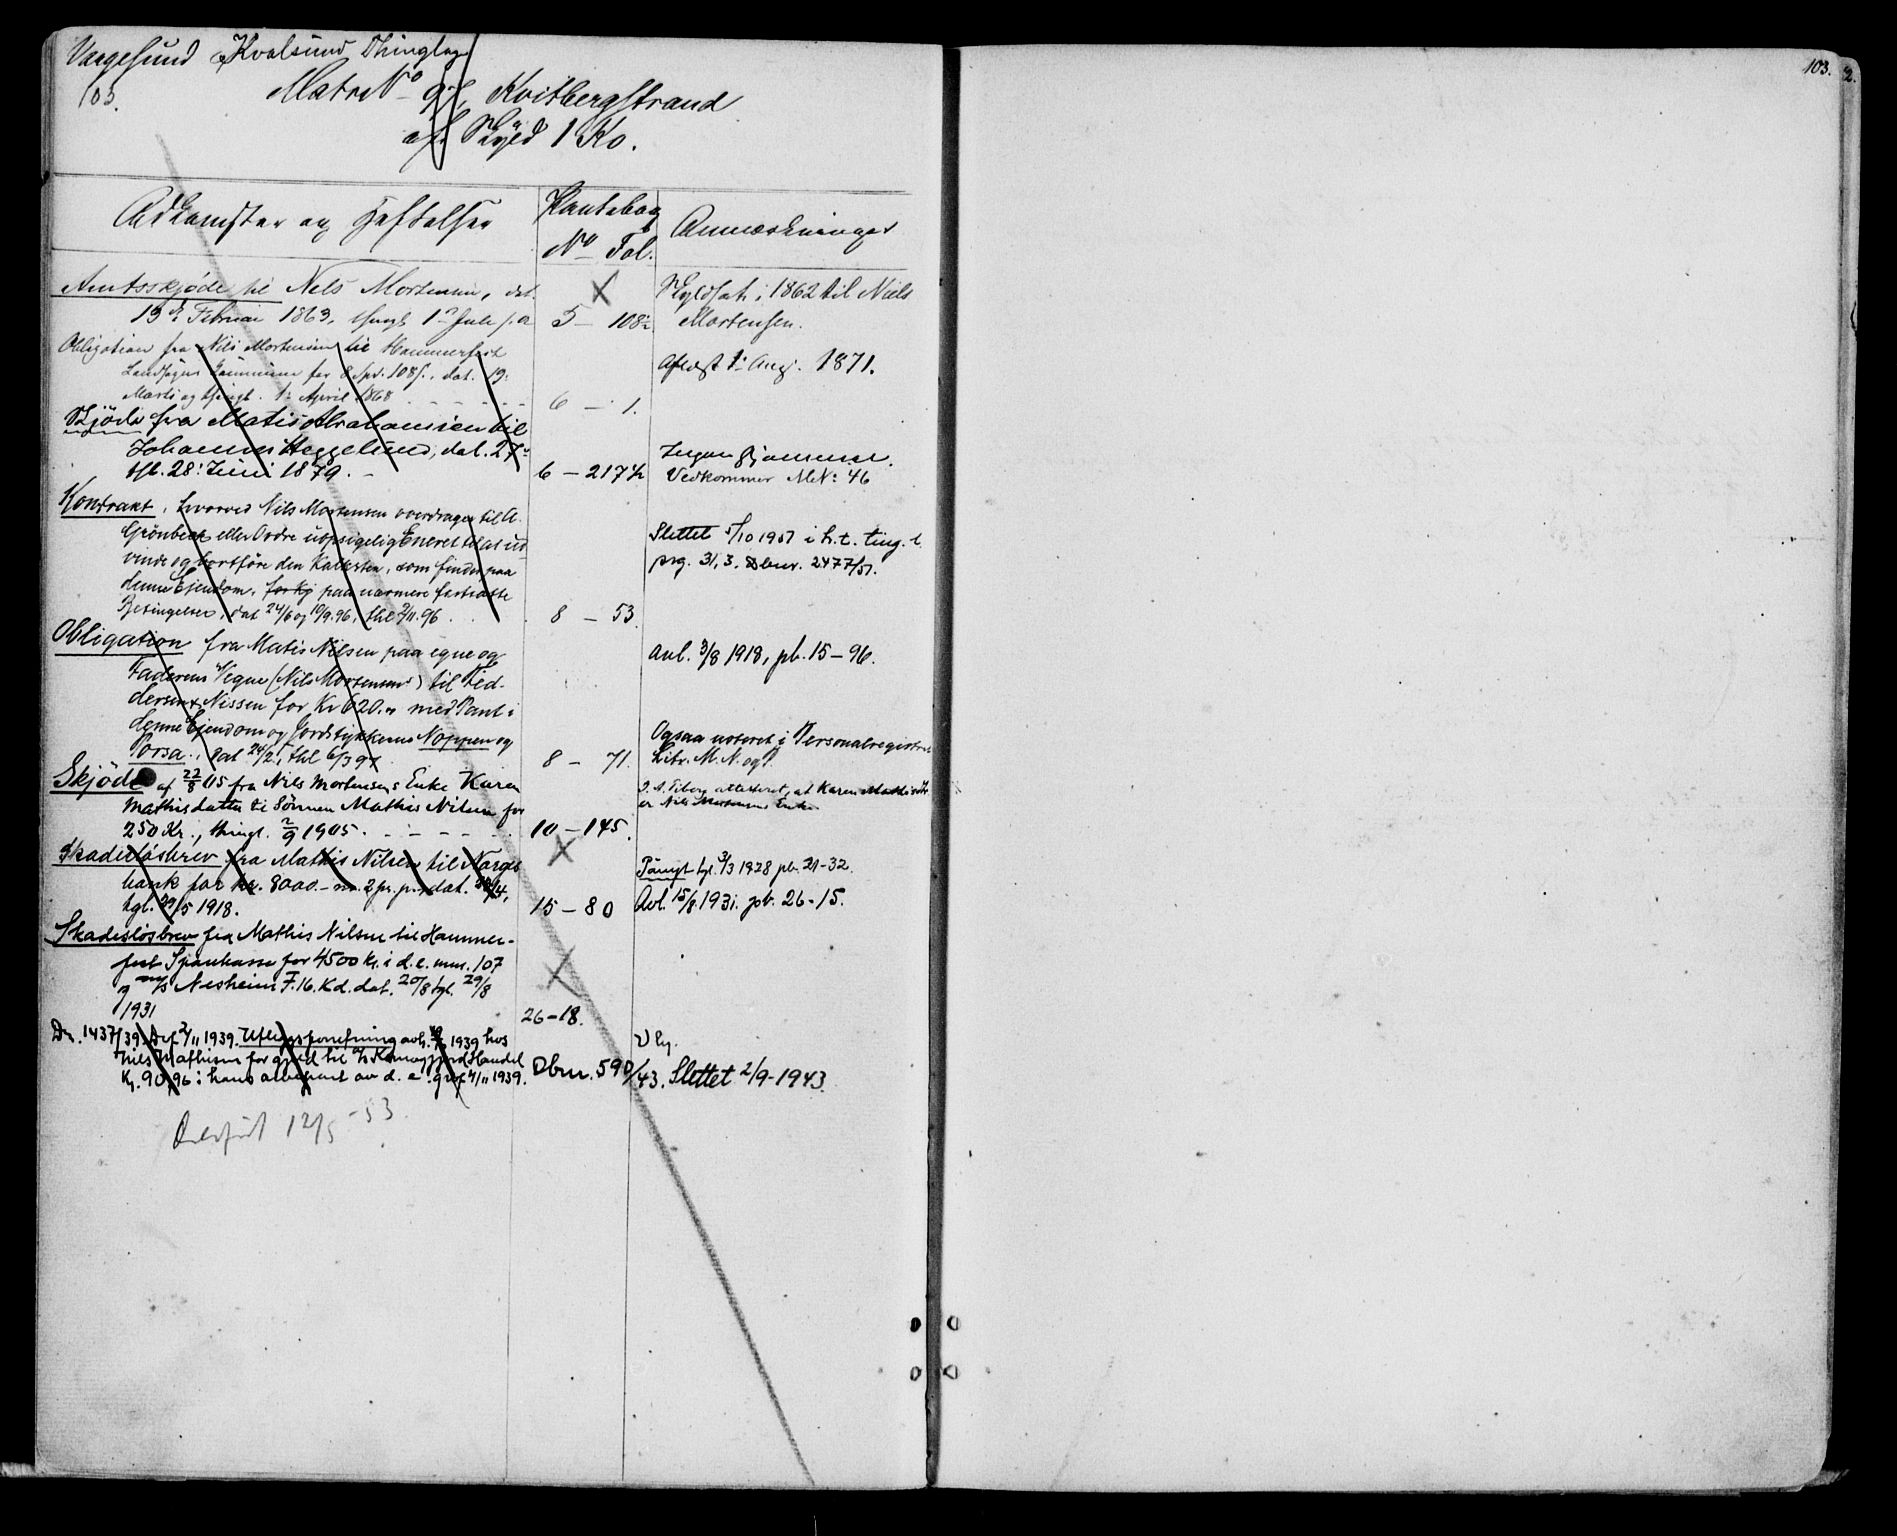 Vargesund & Kvalsund Thinglag
103.
Matr No 97, Kvitbergstrand
af Skyld 1 Ko.
Adkomster og Heftelser
Pantebog
No Fol.
Anmærkninger
Amtsskjøde til Niels Mortensen, dat.
13de Februar 1863, thingl 1ste Juli s. a.
5 – 108
Skyldsat i 1862 til Niels
Mortensen.
Obligation fra Nils Mortensen til Hammerfest
Landsogns Kommune for 8 Spd. 108 s., dat. 19
Marts og thingl. 1: April 1868
6 – 1.
Aflæst 1: Aug. 1871.
Skjöde fra Matis Abrahamsen til
Johannes Heggelund, dat. 27:
thl. 28: Juni 1879. –
6 – 217
Ingen
Vedkommer M.N: 46
Kontrakt, hvorved Nils Mortensen overdrager til A.
Grönbeck eller Ordre uopsigelig Eneret til at ud-
vinde og bortföre den Kalksten, som findes paa
denne Eiendom, paa nærmere fastsatte
Betingelser, dat 24/6 og 10/9.96, thl 2/11.96.
8 – 53.
Slettet 5/10 1951 i h.t. ting.l.
prg. 31, 3. Dbnr. 2477/51.
Obligation fra Matis Nilsen paa egne og
Faderens Vegne (Nils Mortensens) til Fed-
dersen & Nissen for Kr 620.00 med Pant i
denne Ejendom og Jordstykkerne Noppen og
Porsa., dat 24/2, thl 6/3 97
8 – 71.
Avl. 3/8 1918, pb. 15–96.
Ogsaa noteret i Personalregistret
Litr. M. N. og P.
Skjöde af 22/8 05 fra Nils Mortensens Enke Karen
Mathisdatter til Sönnen Mathis Nilsen for
250 Kr., thingl. 2/9 1905.
10 – 145.
attesteret, at Karen Mathisdtr
er Nils Mortensens Enke
Skadeslösbrev fra Mathis Nilsen til Norges
bank for kr. 8000.– m. 2 pr. p., dat. 4,
tgl. 29/5 1918.
15 – 80
tgl. 3/3 1928 pb. 21–32.
Avl. 15/8 1931. pb. 26–15.
Skadeslösbrev fra Mathis Nilsen til Hammer-
fest Sparekasse for 4500 kr. i d. e. mnr. 107
og m/s Nesheim F.16.Kd. dat. 20/8 tgl. 29/8
1931
26–18.
Dr. 1437/39. Dgf. 2/11 1939. Utleggsforretning avh. 1939 hos
Nils Mathisen for gjeld til Handel
Kr. 90,96 i hans arvepart av d. e. 4/11 1939.
Dbnr. 590/43. Slettet 2/9-1943.
Overfört 12/5 –53.
103.
2.